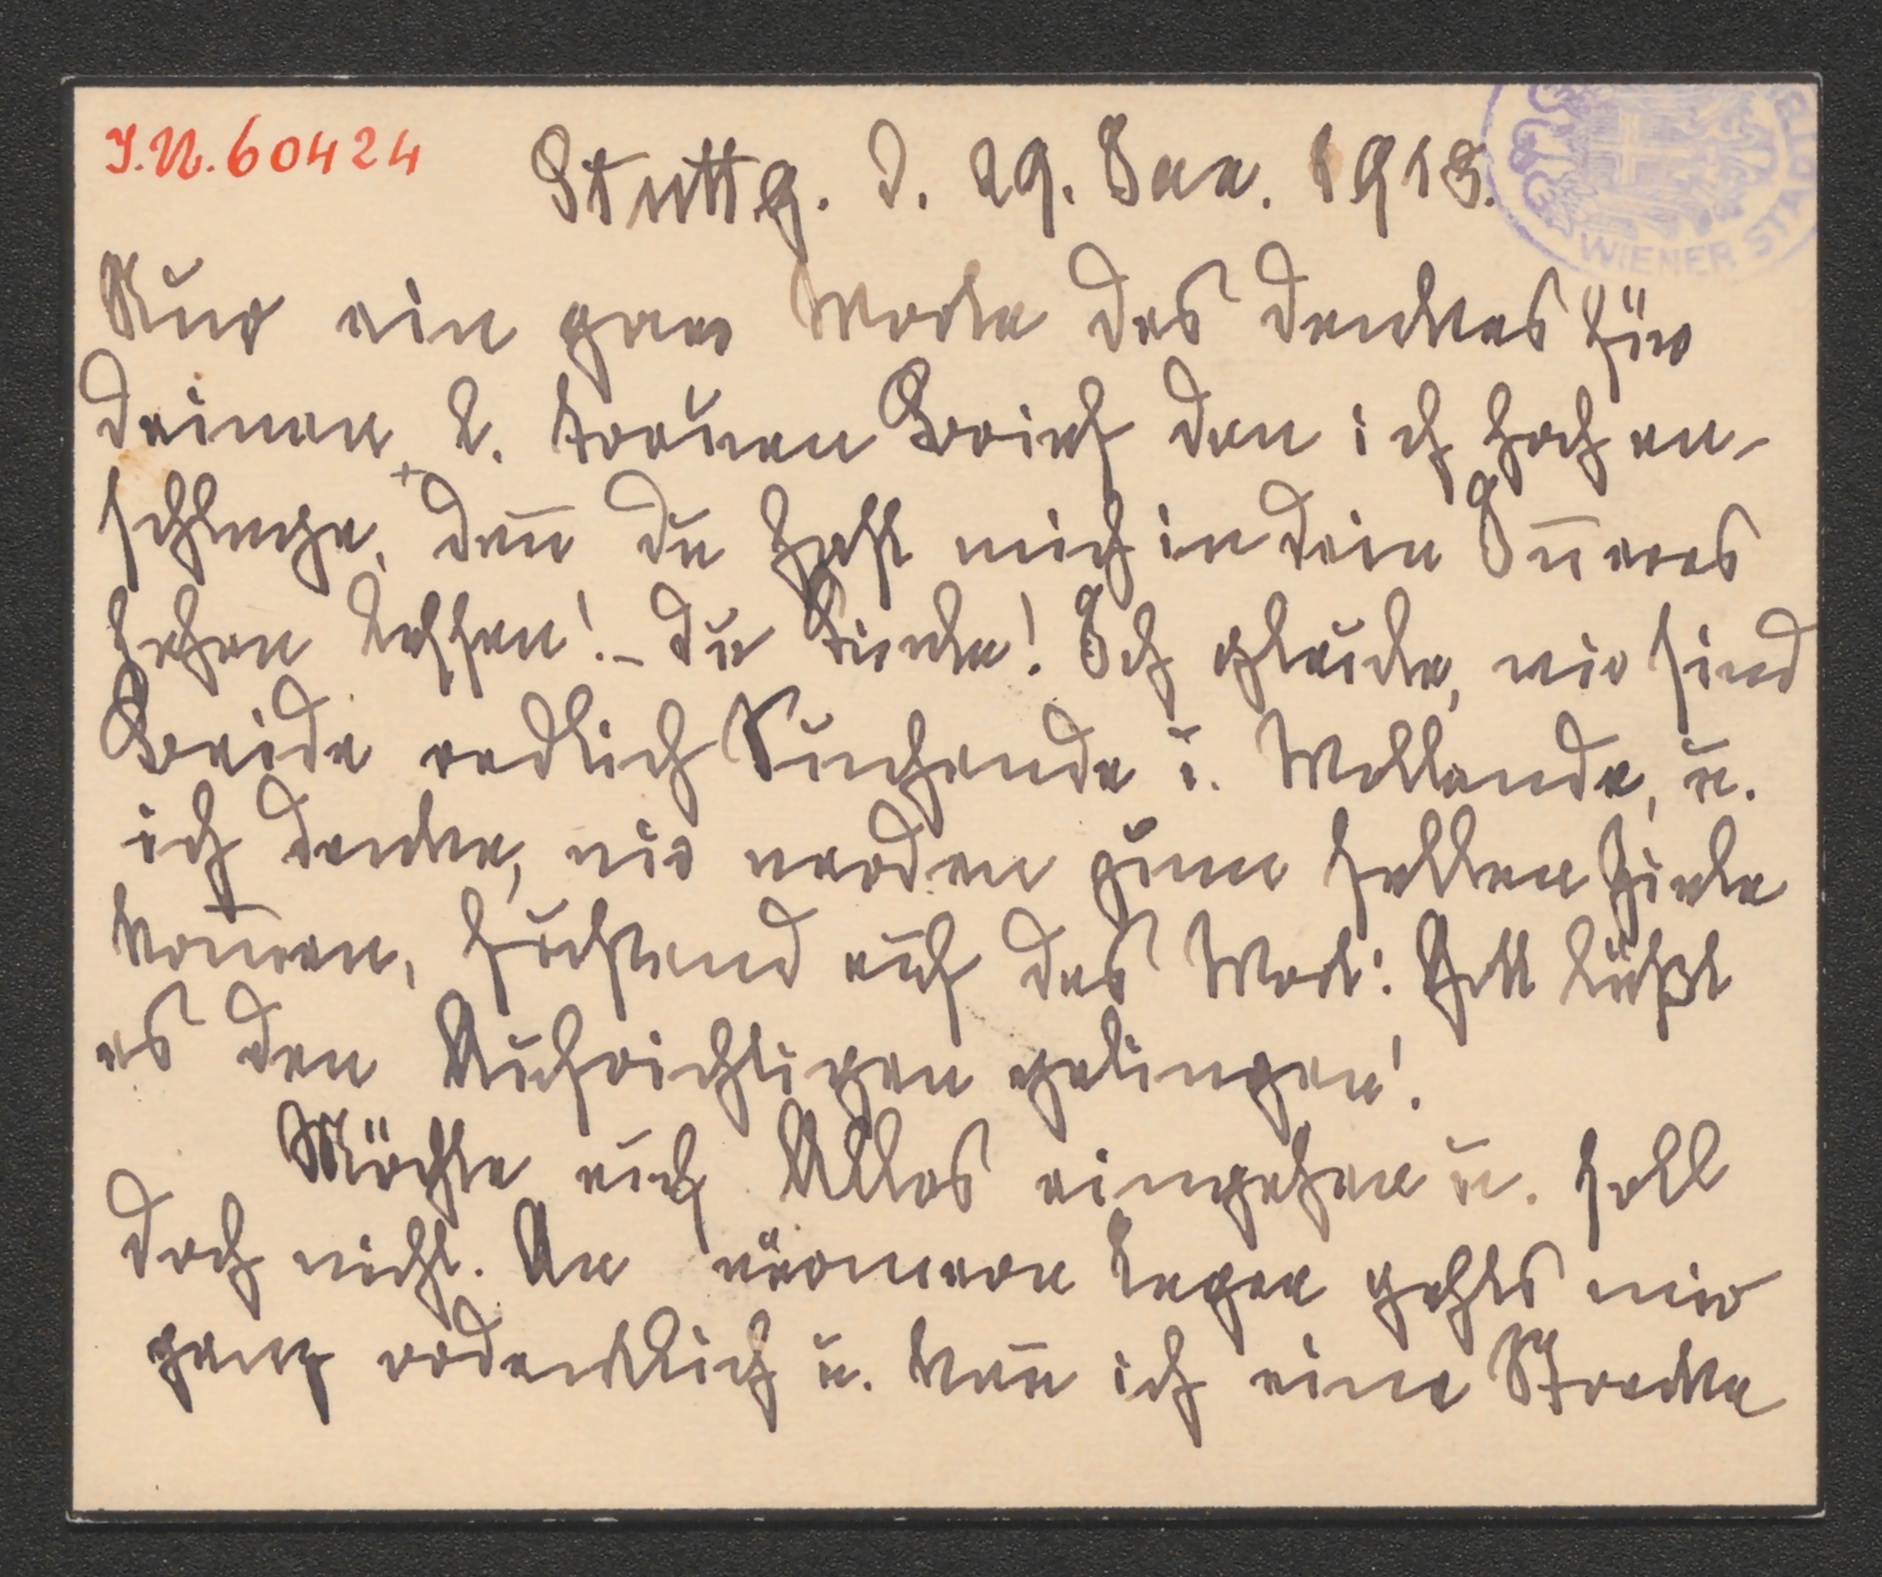 I.N. 60424
Stuttg. d. 29. Jan. 1913.
WIENER STADT
Nur ein paar Worte des Dankes für
deinen l. treuen Brief den ich hoch an-
schlage, deñ du hast mich in dein Iñeres
sehen lassen! – du Liebe! Ich glaube, wir sind
Beide redlich Suchende u. Wollende, u.
ich denke, wir werden zum hellen Ziele
kom̅en, fußend auf das Wort: Gott läßt
es den Aufrichtigen gelingen!
Möchte auf Alles eingehen u. soll
doch nicht. An wärmeren Tagen gehts mir
ganz ordentlich u. kañ ich eine Strecke